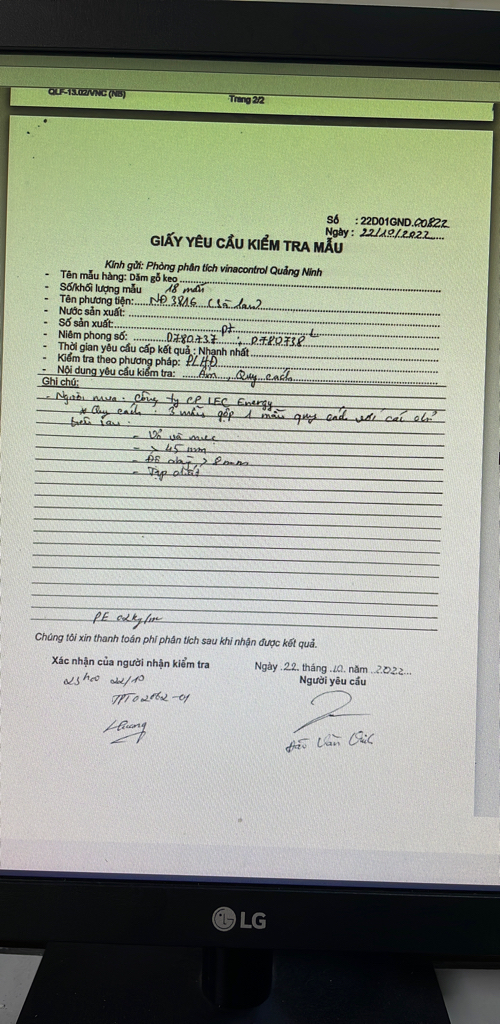 QLF-13.02/VNC (NB)
Trang 2/2
Số : 22D01GND.00822
Ngày : 22/10/2022
GIẤY YÊU CẦU KIỂM TRA MẪU
Kính gửi: Phòng phân tích vinacontrol Quảng Ninh
- Tên mẫu hàng: Dăm gỗ keo
- Số/khối lượng mẫu 18 mẫu
- Tên phương tiện: NĐ 3816 (Sà lan)
- Nước sản xuất:
- Số sản xuất:
- Niêm phong số: 0780737 ; 0780738
- Thời gian yêu cầu cấp kết quả : Nhanh nhất
- Kiểm tra theo phương pháp: PLHĐ
- Nội dung yêu cầu kiểm tra: Ẩm, Quy cách
Ghi chú:
- Người mua: Công ty CP LEC Energy
* Quy cách: 3 mẫu gộp 1 mẫu quy cách với các chỉ
tiêu sau:
- Vỏ và mục
- > 45 mm
- > 8mm
- Tạp chất
PE 02kg/
Chúng tôi xin thanh toán phí phân tích sau khi nhận được kết quả.
Xác nhận của người nhận kiểm tra
Ngày 22 tháng 10 năm 2022
Người yêu cầu
23h00 22/10
02062-01
Đào Văn
LG